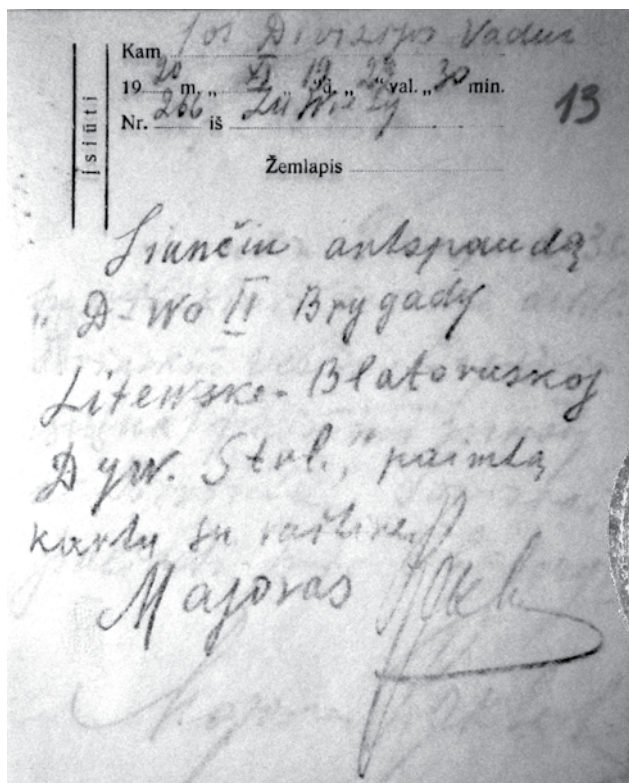 Kam 1os Divizijos Vadui
1920 m. „ XI „ 19 d. „ 22 val. „ 30 min.
Nr. 266 iš
13
įsiūti
Žemlapis
Siunčiu antspaudą
„ D-wo II Brygady
Litewsko-Blatoruskoj
Dyw. Strl.", paimtą
kartu su raštine.
Majoras